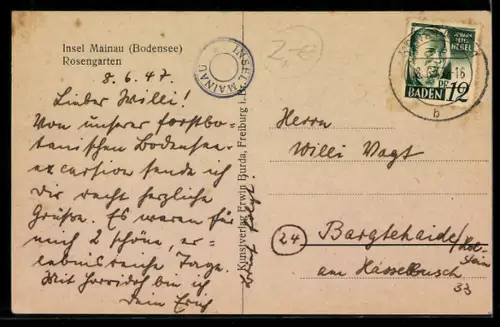 Insel Mainau (Bodensee)
Rosengarten
8. 6. 47.
Lieber Willi!
Von unserer forstbo-
tanischen Bodensee-
excursion sende ich
Dir recht herzliche
Grüße. Es waren für
mich 2 schöne, er-
lebnisreiche Tage.
Mit Horridoh bin ich
Dein Erich
INSEL MAINAU
Kunstverlag Erwin Burda, Freiburg i. B.
2,-€
JOHANN
PETER
HEBEL
BADEN 12
16
b
Herrn
Willi Vagt
(24) Bargteheide/Hol-
stein
am Hasselbusch
33